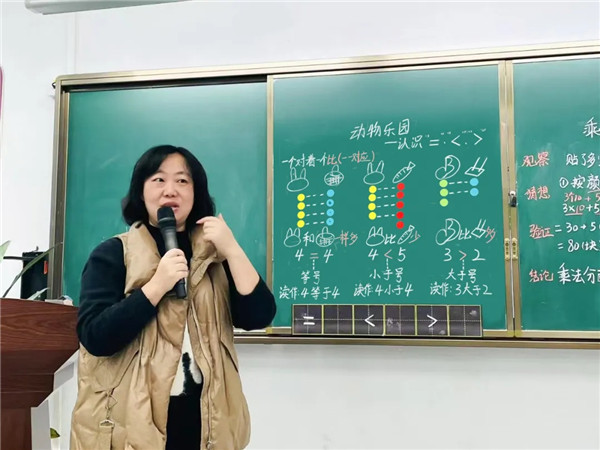 动物乐园
—认识"=""<"">"
一个对着一个比(一一对应)
和 样多 比 少 比
4 = 4 4 < 5 3 > 2
等号 小于号 大于号
读作:4等于4 读作4小于4 读作:3大于2
= < >
乘
观察 贴了多
猜想 ①按颜
3×10+5
3×10+5
验证 =30+5
=80(块
结论 乘法分